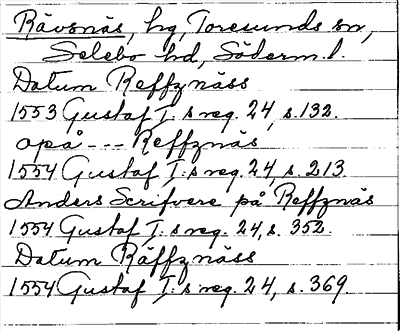 Rävsnäs, hg, Toresunds sn,
Selebo hd, Söderm. l.
Datum Reffznäss
1553 Gustaf I:s reg. 24, s. 132.
opå --- Reffznäs
1554 Gustaf I:s reg. 24, s. 213
Anders Scrifvere på Reffznäs
1554 Gustaf I:s reg. 24, s. 352.
Datum Räffznäss
1554 Gustaf I:s reg. 24, s. 369.